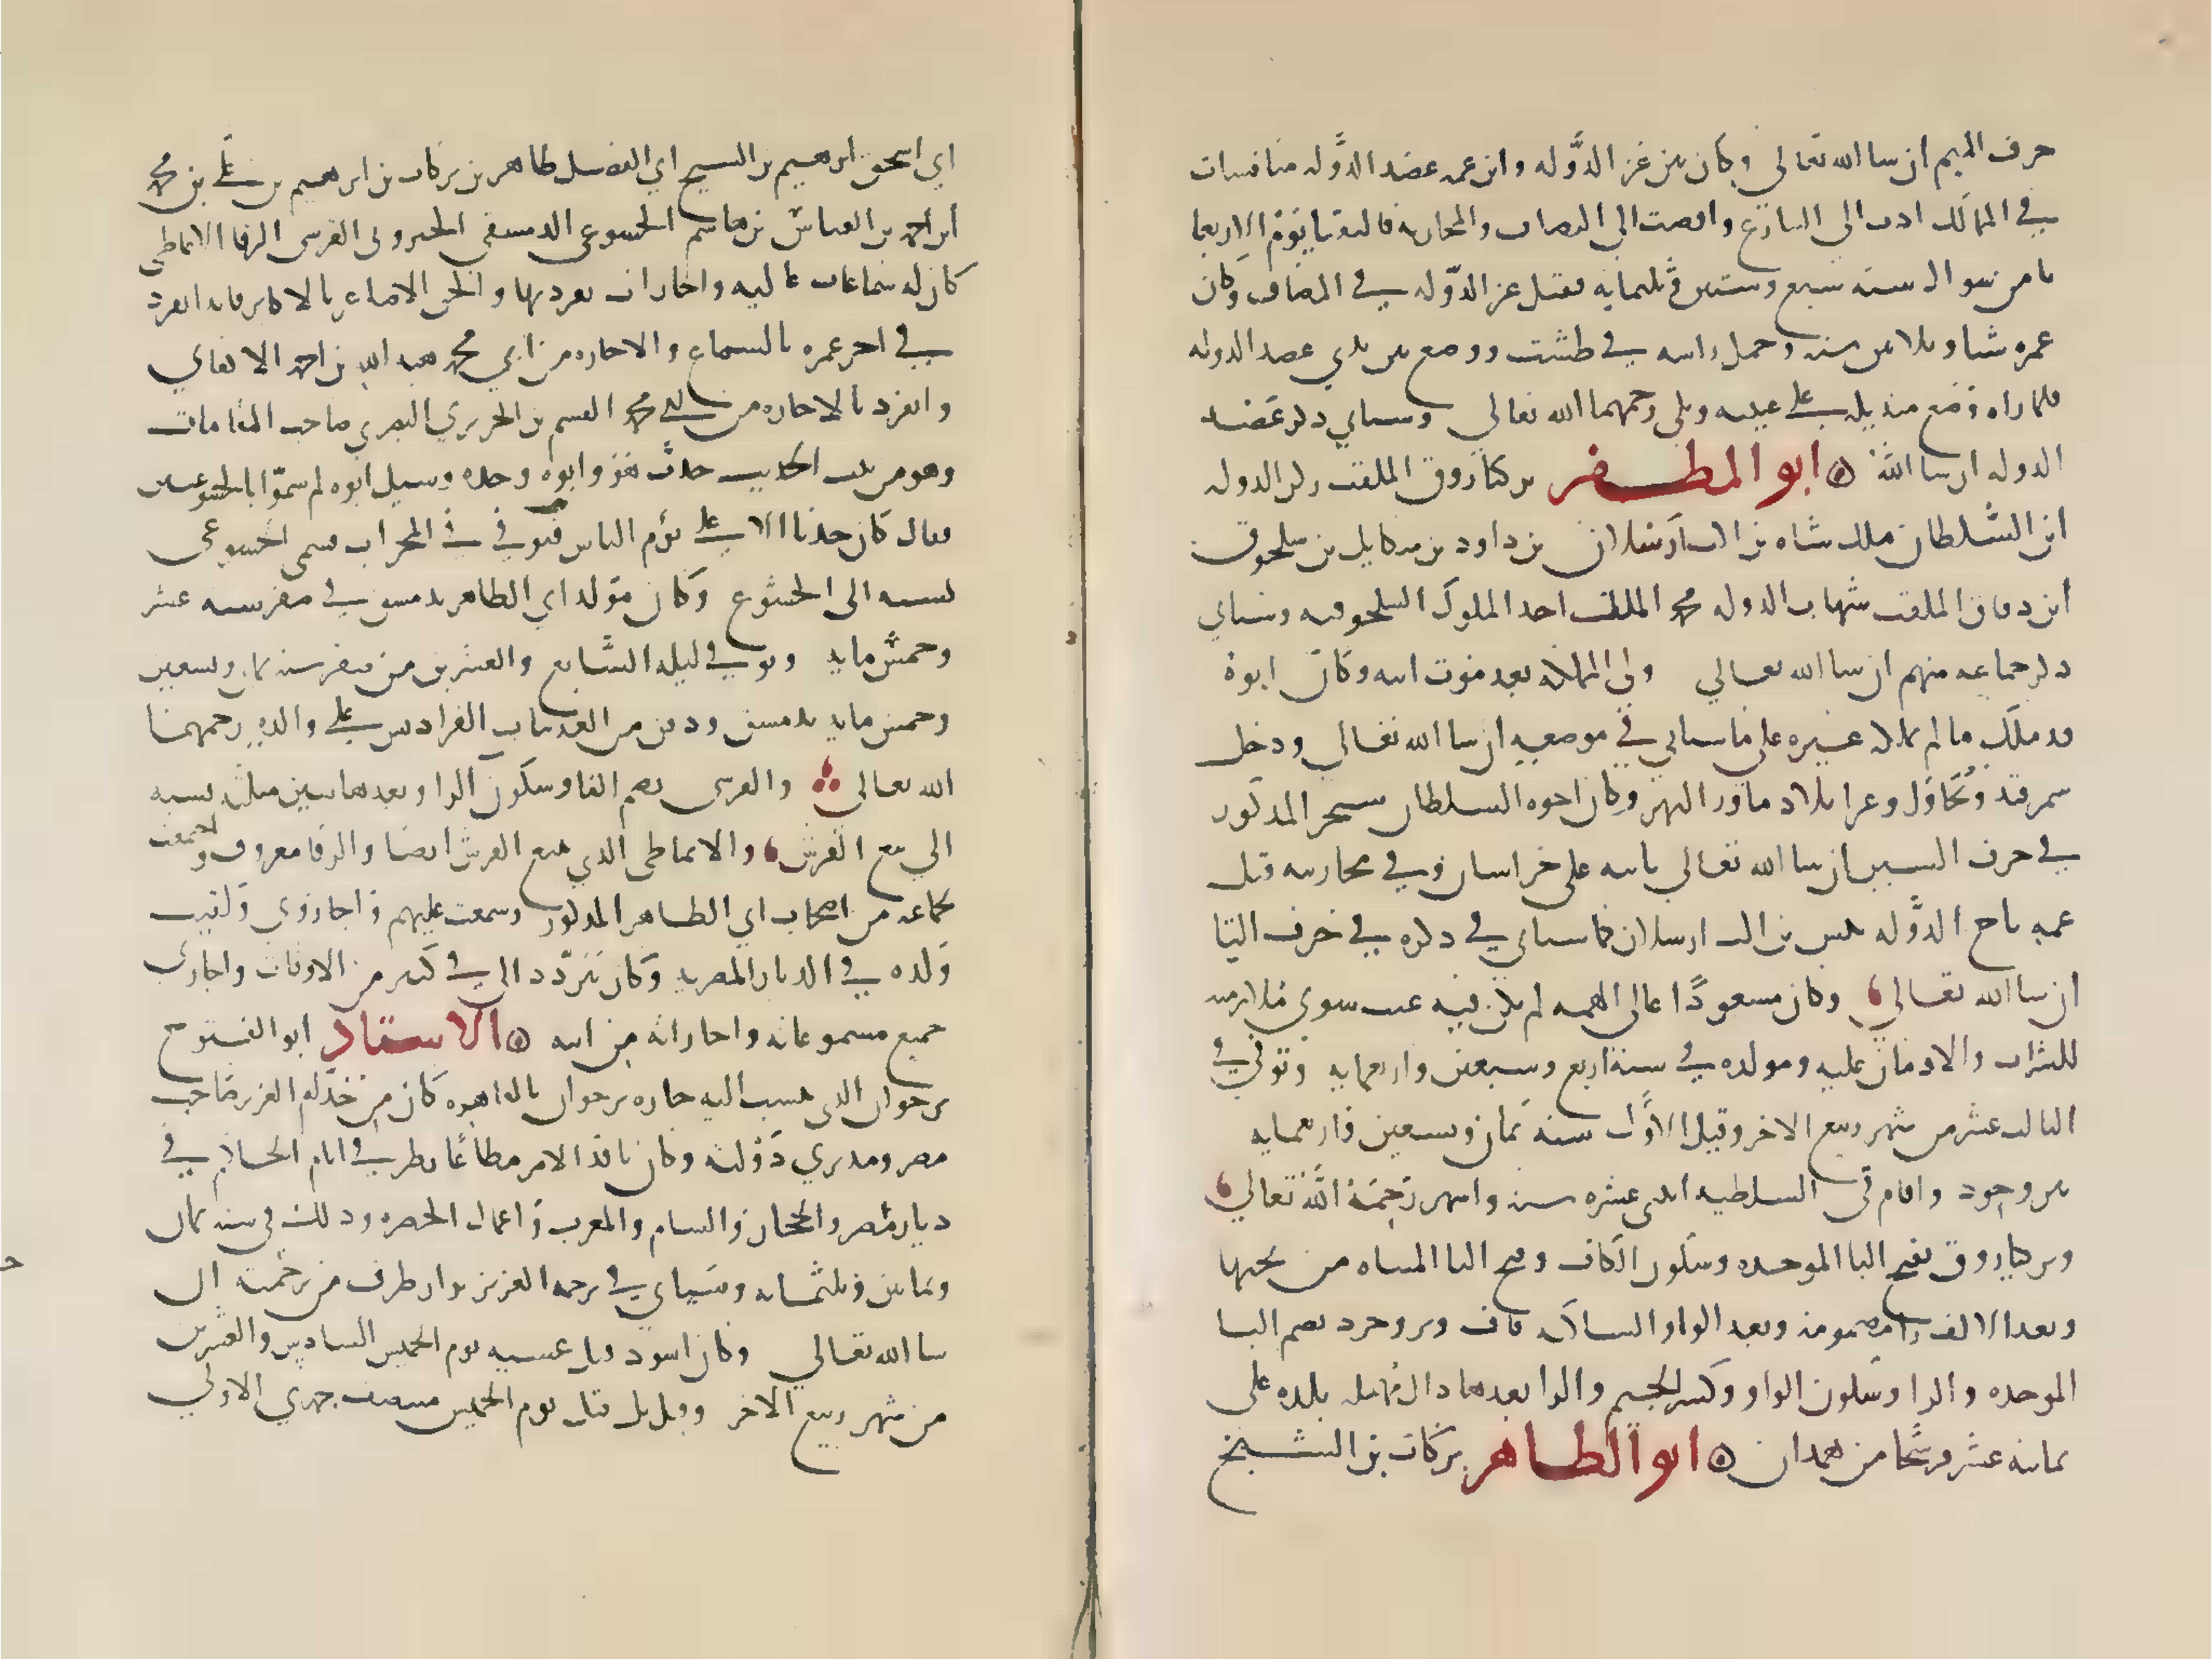 حرف الميم ان شا الله تعالي وكان بين عز الدّوله وابن عمه عضد الدّوله منافسات
في الممالك ادت الي التنازع وافضت الي التصاف والمحاربه فالتقيا يوم الاربعا
ثامن شوال سنه سبع وستين وثلثمايه فقتل عز الدّوله في المصاف وكان
عمره ستا وثلاثين سنه وحمل راسه في طشت ووضع بين يدي عضد الدوله
فلما راه وضع منديله علي عينيه وبكي رحمهما الله تعالي وسياتي ذكر عضد
الدوله ان شا الله ابو المظفر بركياروق الملقب ركن الدوله
ابن السلطان ملك شاه بن الب ارسلان بن داود بن ميكايل بن سلجوق
ابن دقاق الملقب شهاب الدوله محمد الملقب احد الملوك السلجوقيه وسياتي
ذكر جماعه منهم ان شا الله تعالي ولي المملكه بعد موت ابيه وكان ابوه
قد ملك ما لم يملكه غيره علي ما سياتي في موضعه ان شا الله تعالي ودخل
سمرقند وبخارا وغزا بلاد ماورا النهر وكان اخوه السلطان سنجر المذكور
في حرف السين ان شا الله تعالي نايبه علي خراسان وفي محاربته قتل
عمه تاج الدّوله تتش بن الب ارسلان كما سياتي في ذكره في حرف التا
ان شا الله تعالي وكان مسعودًا عالي الهمه لم يكن فيه عيب سوي ملازمته
للشراب والادمان عليه ومولده في سنة اربع وسبعين واربعمايه وتوفي في
الثاني عشر من شهر ربيع الاخر وقيل الاوّل سنه ثمان وتسعين واربعمايه
ببروجرد واقام في السلطنه اثنتي عشره سنه واشهر رحمة الله تعالي
وبركياروق بفتح البا الموحده وسكون الكاف وفتح اليا المثناه من تحتها
وبعد الالف را مضمومه وبعد الواو الساكنه قاف وبروجرد بضم البا
الموحده والرا وسكون الواو وكسر الجيم والرا بعدها دال مهمله بلده علي
ثمانيه عشر فرسخا من همدان ابو الطاهر بركات بن الشيخ
ابي اسحق ابرهيم بن الشيخ ابي الفضل طاهر بن بركات بن ابرهيم بن علي بن محمد
ابن احمد بن العباس بن هاشم الخشوعي الدمشقي الجيروني الفرشي الرفا الانماطي
كان له سماعات عاليه واجازات تفرد بها والحق الاصاغر بالاكابر فانه انفرد
في اخر عمره بالسماع والاجازه من ابي محمد هبه الله بن احمد الاكفاني
وانفرد بالاجازه من ابي محمد القسم بن الحريري البصري صاحب المقامات
وهو من بيت الحديث حدث هو وابوه وجده وسيل ابوه لم سموا بالخشوعيين
فقال كان جدنا الاعلي يؤم الناس فتوفي في المحراب فسمي الخشوعي
نسبه الي الخشوع وكان مولد ابي الطاهر بدمشق في صفر سنه عشر
وخمس مايه وتوفي ليله السابع والعشرين من صفر سنه ثمان وتسعين
وخمس مايه بدمشق ودفن من الغد بباب الفراديس علي والده رحمهما
الله تعالي والفرشي بضم الفا وسكون الرا وبعدها شين مثلثه نسبه
الي بيع الفرش والانماطي الذي يبيع الفرش ايضا والرفا معروف واجتمعت
بجماعه من اصحاب ابي الطاهر المذكور وسمعت عليهم واجازوني ولقيت
ولده في الديار المصريه وكان يتردد الي في كثير من الاوقات واجازني
جميع مسموعاته واجازاته من ابيه الاستاد ابو الفتوح
برجوان الذي ينسب اليه حاره برجوان بالقاهره كان من خدام العزيز صاحب
مصر ومدبري دولته وكان نافذ الامر مطاعًا نظر في ايام الحاكم في
ديار مصر والحجاز والشام والمغرب واعمال الحضره وذلك في سنه ثمان
وثمانين وثلثمايه وسياتي في ترجمه العزيز نزار طرف من ترجمته ان
شا الله تعالي وكان اسود وقتل عشيه يوم الخميس السادس والعشرين
من شهر ربيع الاخر وقيل بل قتل يوم الخميس منتصف جمدي الاولي